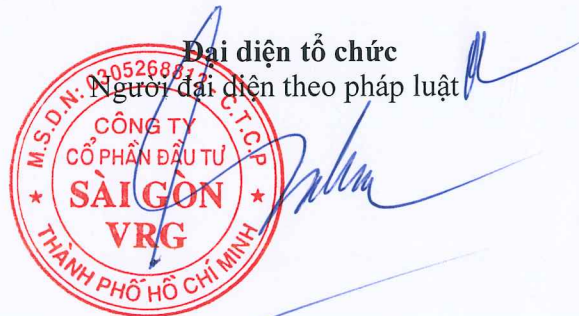 Đại diện tổ chức
Người đại diện theo pháp luật
M.S.D.N: 0305268812 - C.T.C.P
CÔNG TY
CỔ PHẦN ĐẦU TƯ
SÀI GÒN
VRG
THÀNH PHỐ HỒ CHÍ MINH